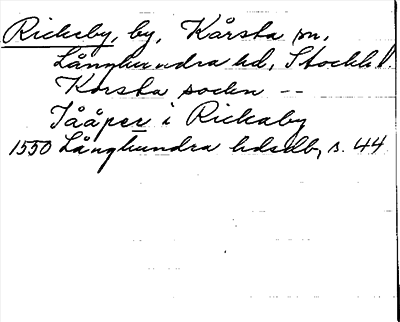 Rickeby, by, Kårsta sn,
Långhundra hd, Stockh. l.
Korsta sockn --
Jååper i Rickaby
1550 Långhundra hdsdb, s. 44